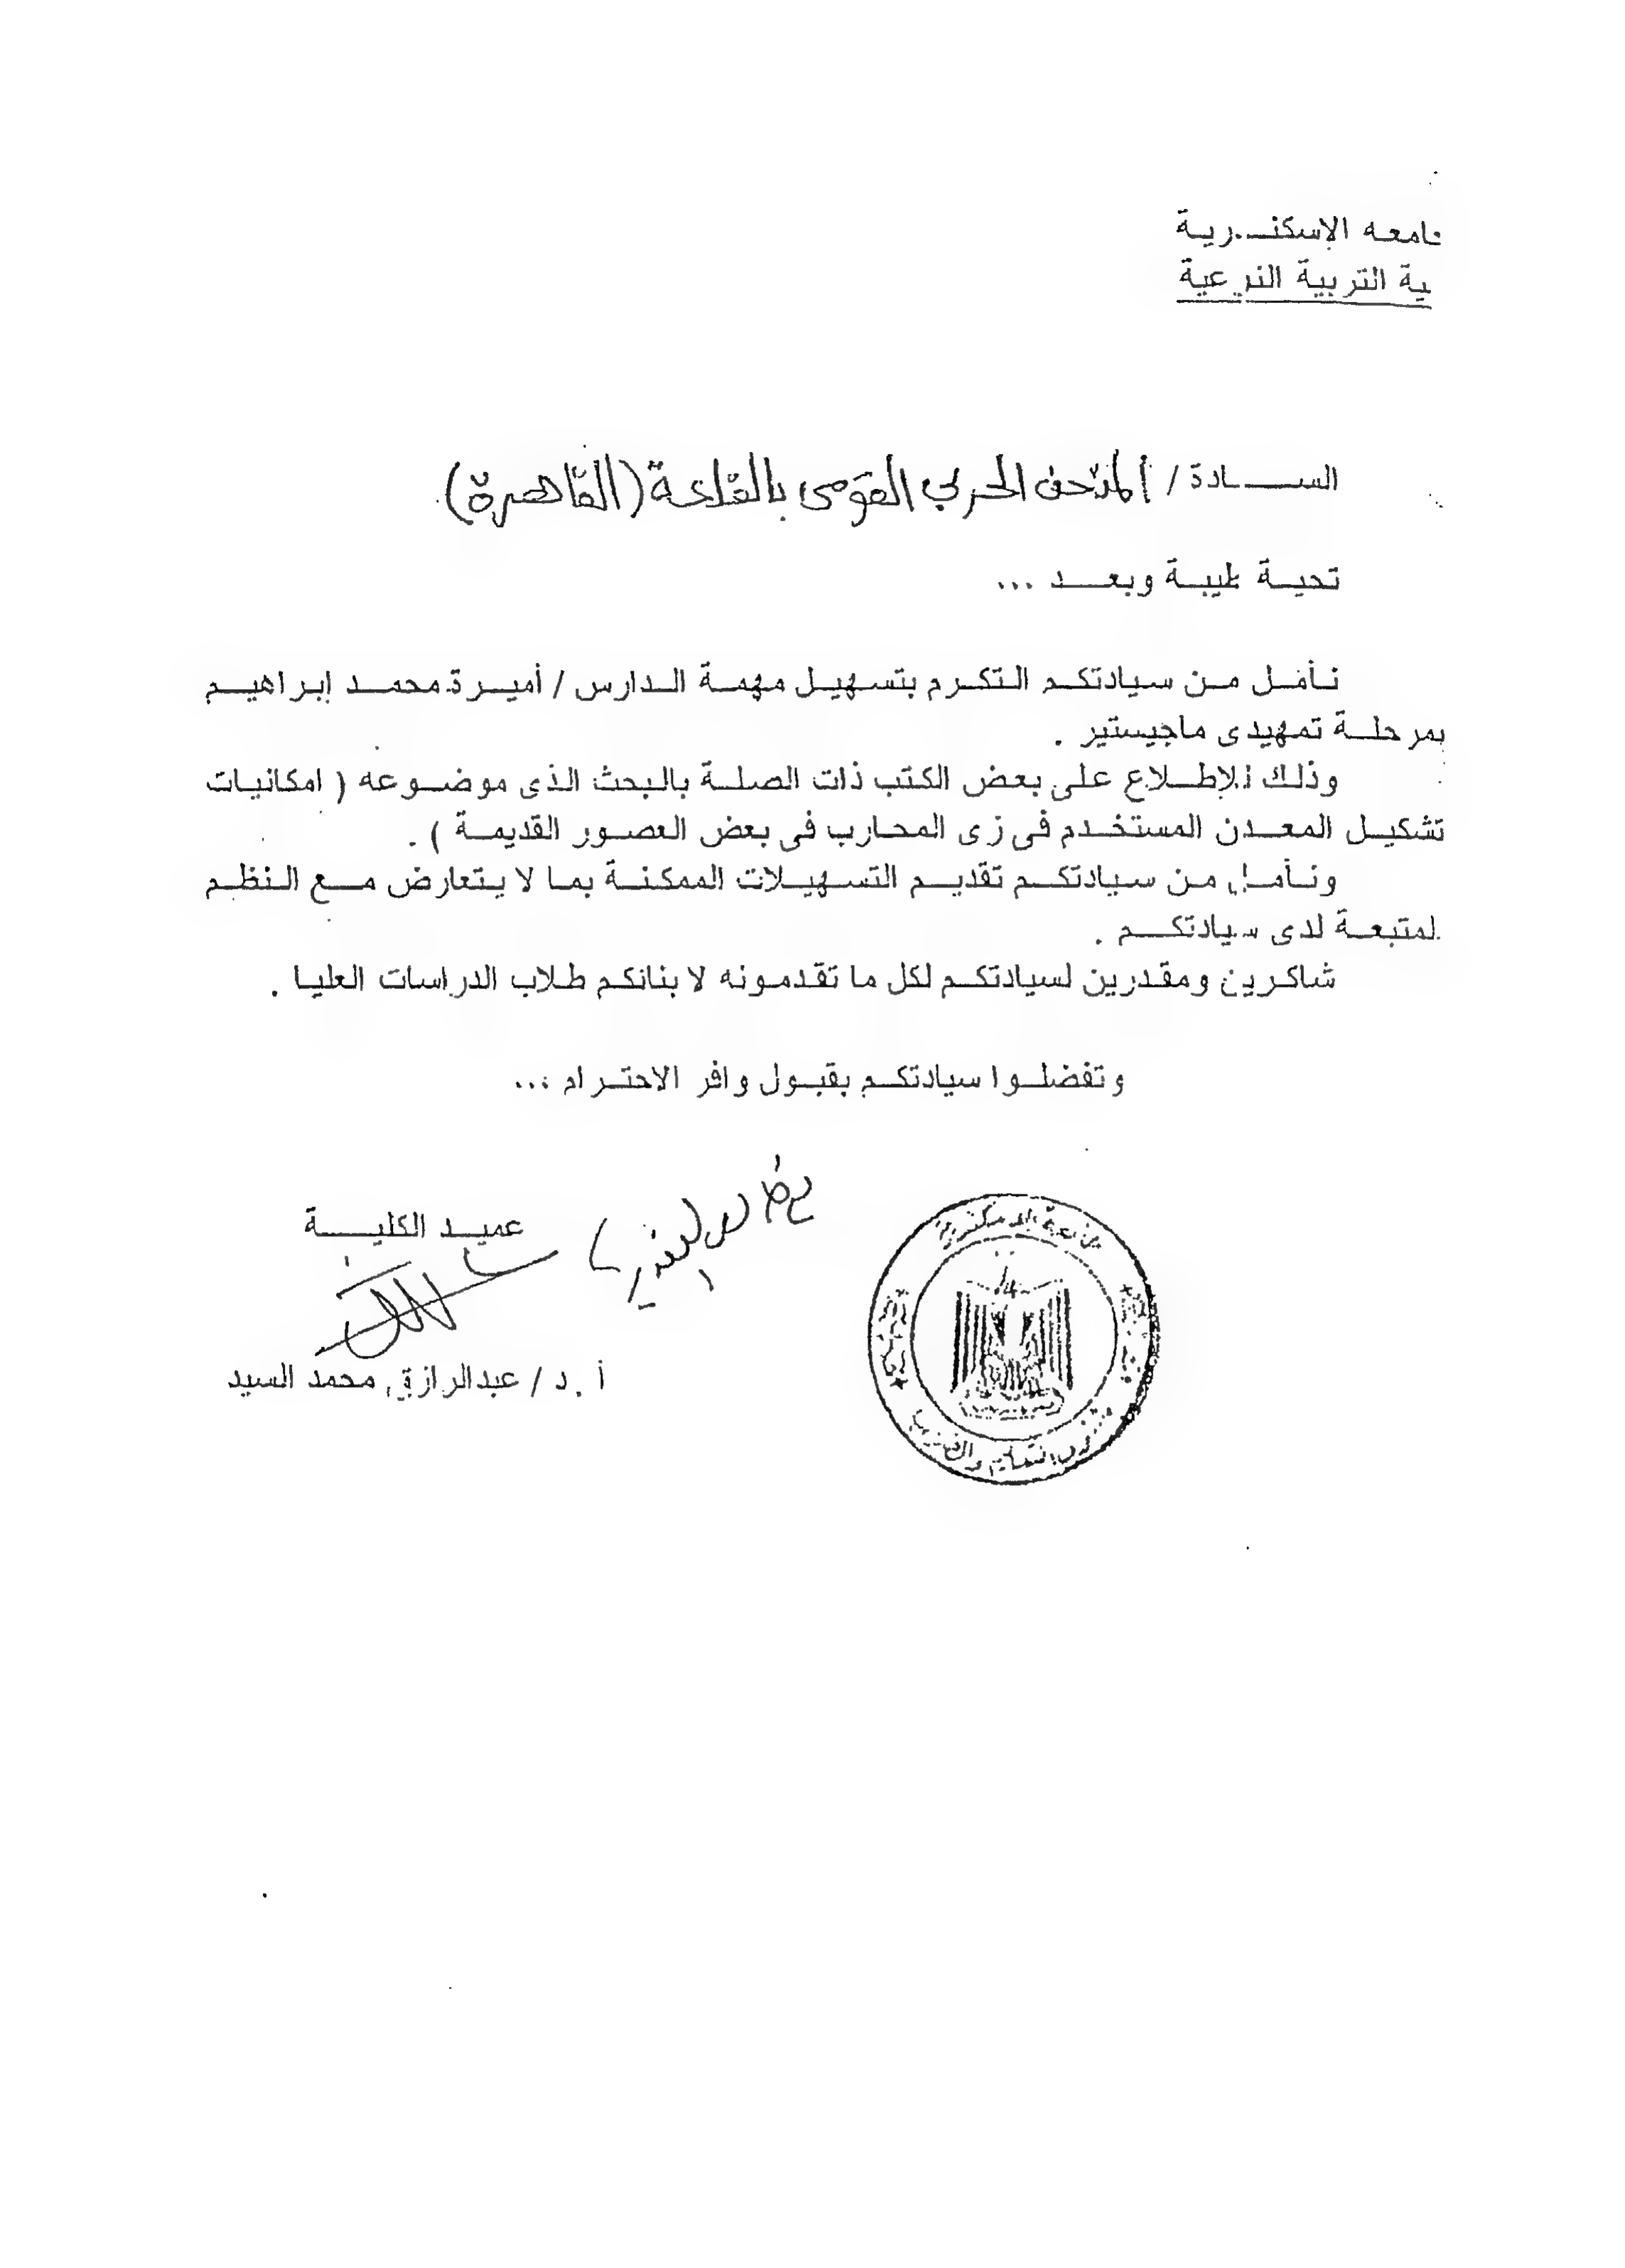 جامعه الإسكندرية
ية التربية النوعية
الســـادة / المتحف الحربي القومى بالقلعة (القاهرة)
تحية طيبة وبعد ...
نأمل من سيادتكم التكرم بتسهيل مهمة الدارس / أميرة محمد إبراهيم
بمرحلة تمهيدى ماجيستير .
وذلك للإطلاع على بعض الكتب ذات الصلة بالبحث الذى موضوعه ( امكانيات
تشكيل المعدن المستخدم فى زى المحارب فى بعض العصور القديمة ) .
ونأمل من سيادتكم تقديم التسهيلات الممكنة بما لا يتعارض مع النظم
لمتبعة لدى سيادتكم .
شاكرين ومقدرين لسيادتكم لكل ما تقدمونه لابنائكم طلاب الدراسات العليا .
وتفضلوا سيادتكم بقبول وافر الاحترام ...
عميد الكلية
أ . د / عبدالرازق محمد السيد